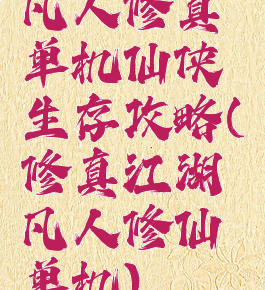 凡人修真
单机仙侠
生存攻略(
修真江湖
凡人修仙
单机)